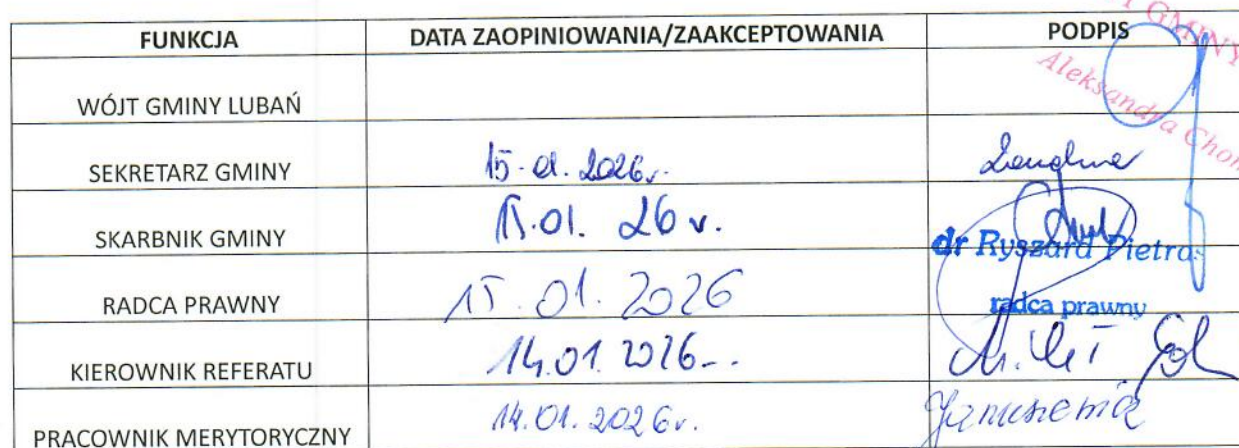 FUNKCJA DATA ZAOPINIOWANIA/ZAAKCEPTOWANIA PODPIS
GMINY
Aleksandra Chom
WÓJT GMINY LUBAŃ
SEKRETARZ GMINY 15.01.2026r.
SKARBNIK GMINY 15.01.26r.
dr Ryszard Pietras
RADCA PRAWNY 15.01.2026
radca prawny
KIEROWNIK REFERATU 14.01.2026
PRACOWNIK MERYTORYCZNY 14.01.2026r.